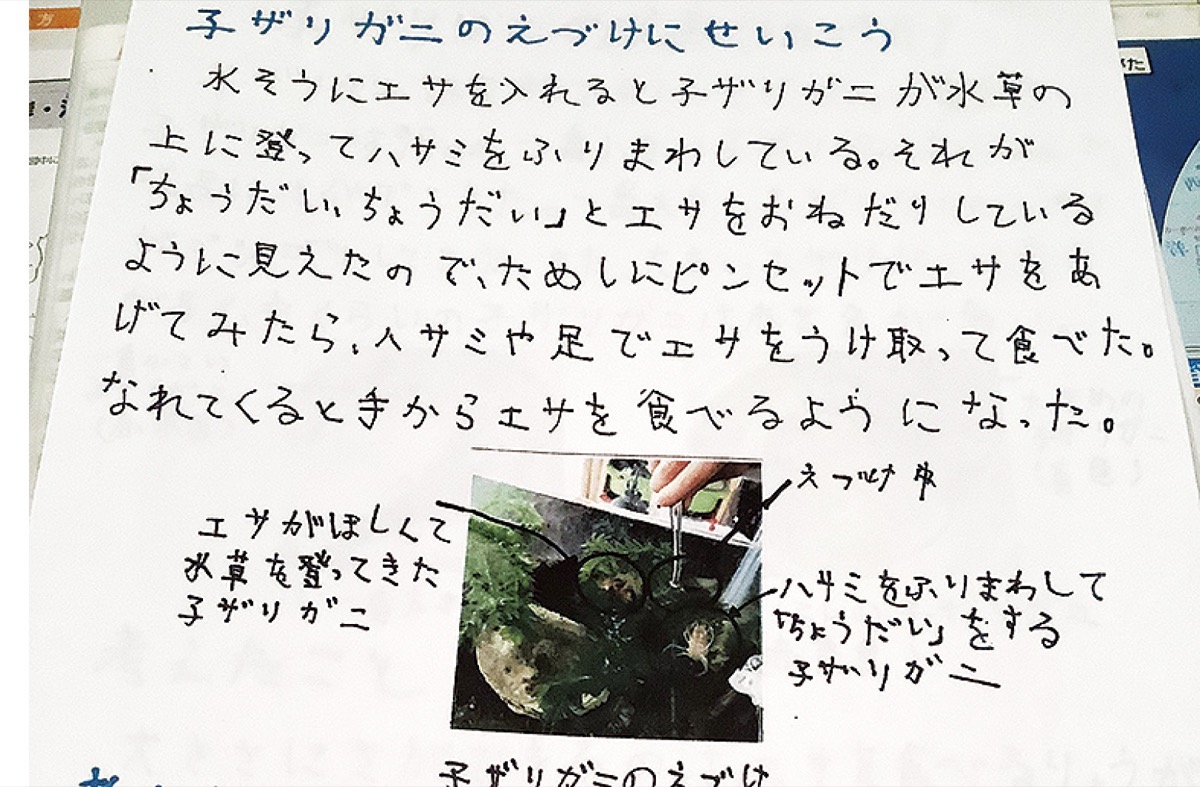 子ザリガニのえづけにせいこう
水そうにエサを入れると子ザリガニが水草の
上に登ってハサミをふりまわしている。それが
「ちょうだい、ちょうだい」とエサをおねだりしている
ように見えたので、ためしにピンセットでエサをあ
げてみたら、ハサミや足でエサをうけ取って食べた。
なれてくると手からエサを食べるようになった。
えづけ中
エサがほしくて
水草を登ってきた
子ザリガニ
ハサミをふりまわして
「ちょうだい」をする
子ザリガニ
子ザリガニのえづけ
方